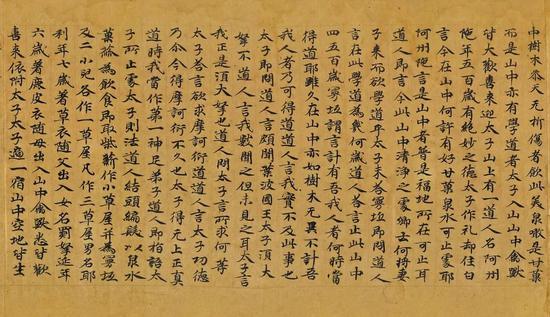 中樹木叅天无折傷者飲此美泉噉是甘菓
而是山中亦有學道者太子入山山中禽獸
皆大歡喜来迎太子山上有一道人名阿州
陁年五百歲有絶妙之德太子作礼却住白
言今在山中何許有好甘菓泉水可止處耶
阿州陁言是山中者普是福地所在可止耳
道人即言今此山中清淨之處卿云何將妻
子来而欲學道乎太子未荅寧坻即問道人
言在此學道為幾何歲道人荅言止此山中
四五百歲寧坻謂言計有吾我人者何時當
得道耶雖久在山中亦如樹木无異不計吾
我人者乃可得道道人言我實不及此事也
太子即問道人言頗聞葉波國王太子湏大
拏不道人言我數聞之但未見之耳太子言
我正是湏大拏也道人問太子言所求何等
太子荅言欲求摩訶衍道道人言太子功德
乃尒今得摩訶衍不久也太子得无上正真
道時我當作第一神足弟子道人即指語太
子所止處太子則法道人結頭編髮以泉水
菓蓏為飲食即取柴薪作小草屋并為寧坻
及二小兒各作一草屋凡作三草屋男名耶
利年七歲著草衣随父出入女名罽拏延年
六歲著鹿皮衣随母出入山中禽獸悉皆歡
喜来依附太子太子適一宿山中空池皆生